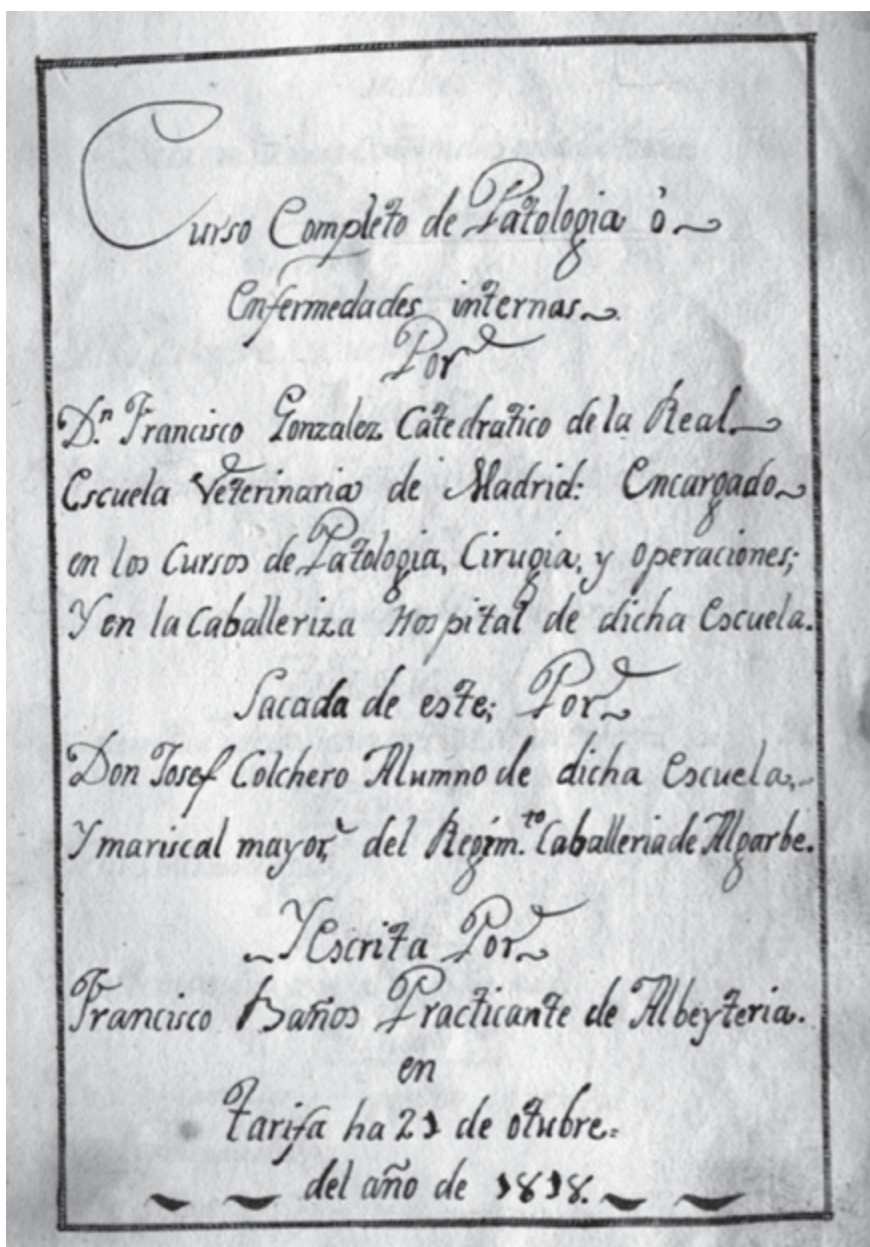 Curso Completo de Patologia ò
enfermedades internas.
Por
D.ⁿ Francisco Gonzalez Catedratico de la Real
Escuela Veterinaria de Madrid: Encargado
en los Cursos de Patologia, Cirugia, y operaciones;
Y en la Caballeriza Hospital de dicha Escuela.
Sacada de este; Por
Don Josef Colchero Alumno de dicha Escuela,
Y mariscal mayor, del Regim.ᵗᵒ Caballeria de Algarbe.
Y Escrita Por
Francisco Baños Practicante de Albeyteria.
en
tarifa ha 21 de otubre.
del año de 1818.